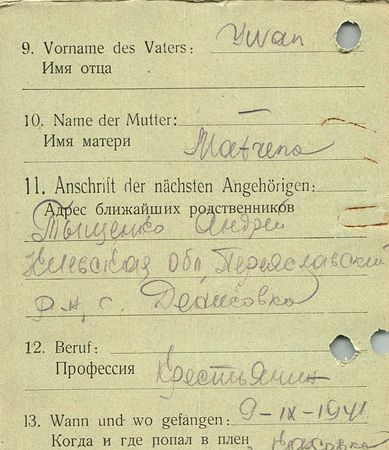 9. Vorname des Vaters: Ywan
Имя отца
10. Name der Mutter:
Имя матери Matrena
11. Anschrift der nächsten Angehörigen:
Адрес ближайших родственников
Тыщенко Андрей
Киевская обл, Переяславский
р-н, с. Денисовка
12. Beruf:
Профессия Крестьянин
13. Wann und wo gefangen: 9-IX-1941
Когда и где попал в плен